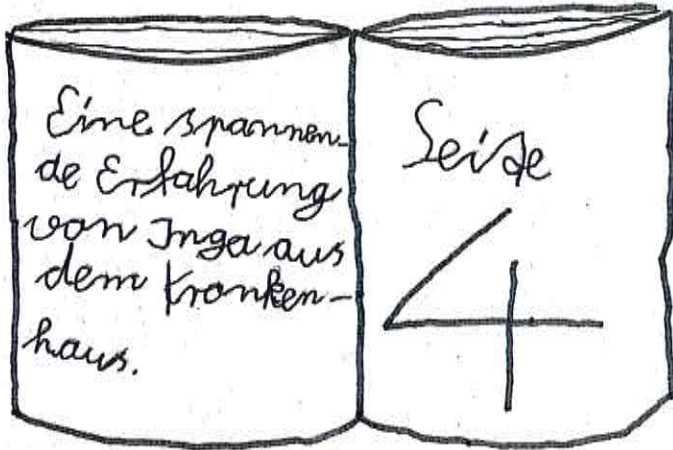 Eine spannen-
de Erfahrung
von Inga aus
dem Kranken-
haus.
Seite
4